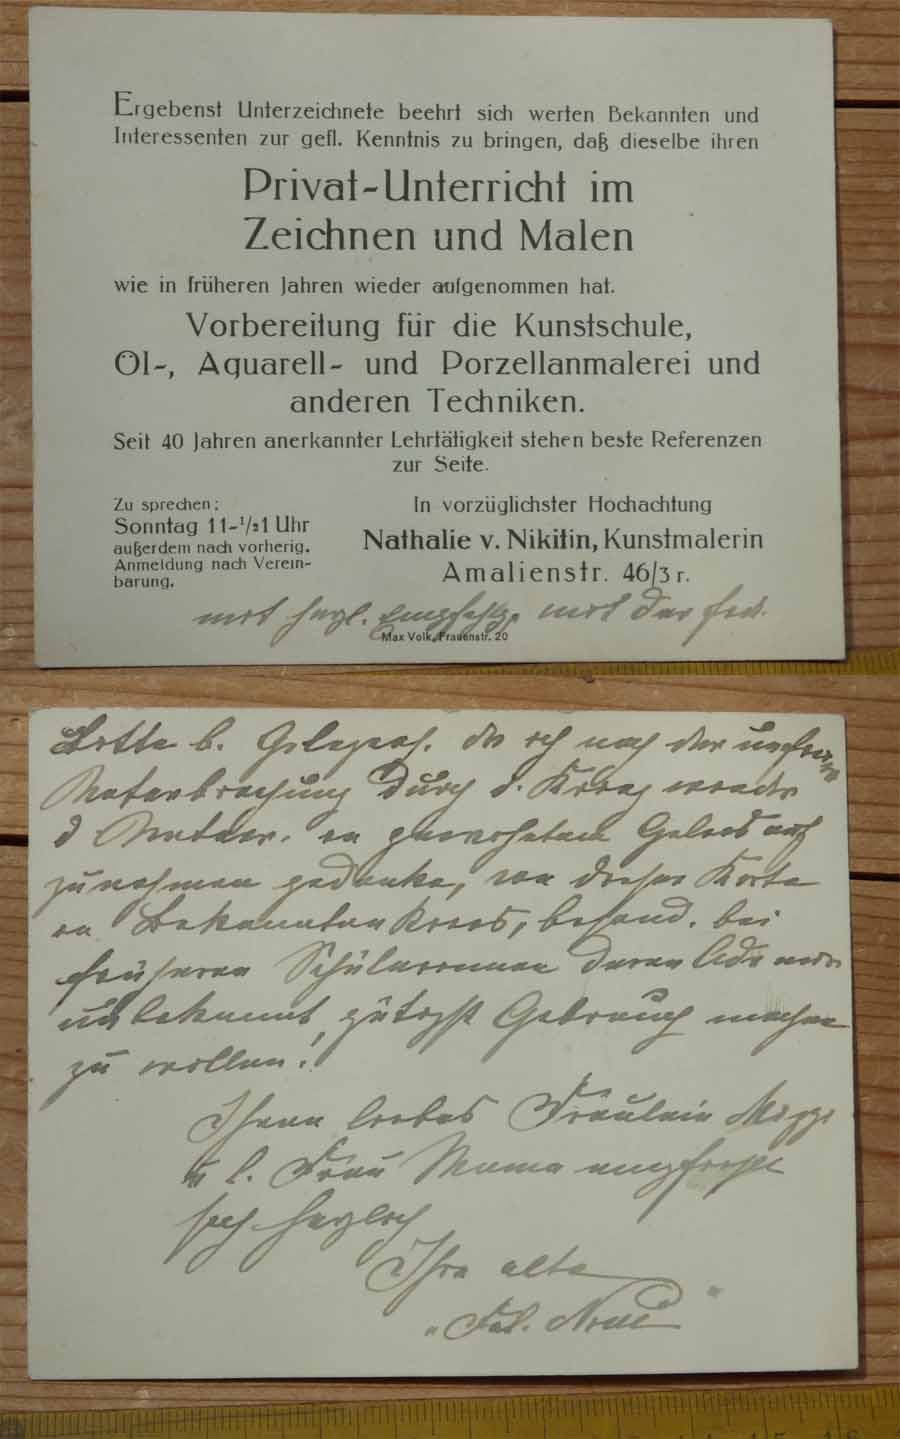 Ergebenst Unterzeichnete beehrt sich werten Bekannten und
Interessenten zur gefl. Kenntnis zu bringen, daß dieselbe ihren
Privat-Unterricht im
Zeichnen und Malen
wie in früheren Jahren wieder aufgenommen hat.
Vorbereitung für die Kunstschule,
Öl-, Aquarell- und Porzellanmalerei und
anderen Techniken.
Seit 40 Jahren anerkannter Lehrtätigkeit stehen beste Referenzen
zur Seite.
Zu sprechen:
Sonntag 11-½1 Uhr
außerdem nach vorherig.
Anmeldung nach Verein-
barung.
In vorzüglichster Hochachtung
Nathalie v. Nikitin, Kunstmalerin
Amalienstr. 46/3 r.
mit herzl. Empfehlg. mit der frdl.
Max Volk, Frauenstr. 20
Bitte b. Gelegenh. da ich nach der
Unterbrechung durch d. Krieg wieder
d Unterr. in gewohntem Geleis auf
zunehmen gedenke, von dieser Karte
in Bekanntenkreis, besond. bei
früheren Schülerinnen deren Adr mir
unbekannt, gütigst Gebrauch machen
zu wollen!
Ihnen liebes Fräulein
u l. Frau Mama empfiehlt
sich herzlich
Ihre alte